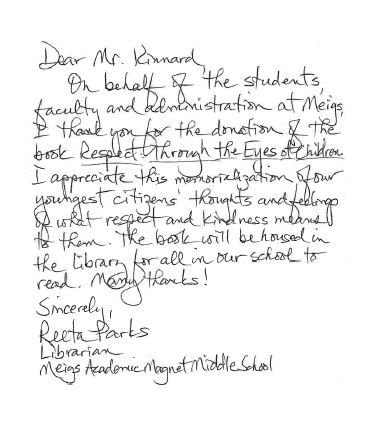 Dear Mr. Kinnard,
On behalf of the students,
faculty and administration at Meigs,
I thank you for the donation of the
book Respect Through the Eyes of Children.
I appreciate this memorialization of our
youngest citizens' thoughts and feelings
of what respect and kindness means
to them. The book will be housed in
the Library for all in our school to
read. Many thanks!
Sincerely,
Reeta Parks
Librarian
Meigs Academic Magnet Middle School